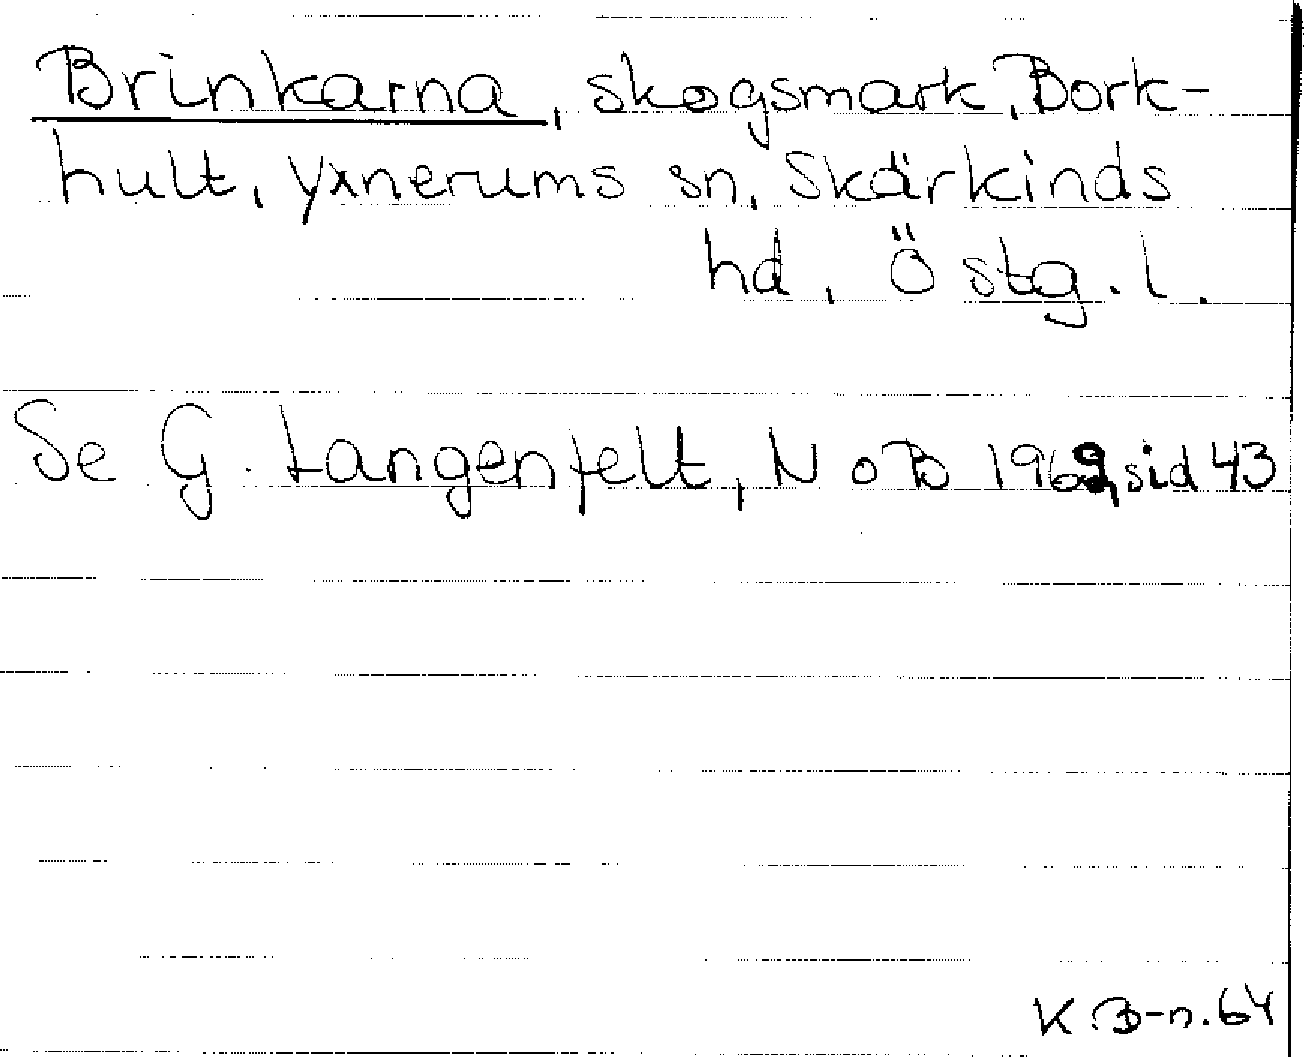 Brinkarna, skogsmark, Bork-
hult, Yxnerums sn, Skärkinds
hd, Östg. l.
Se G. Langenfelt, N o B 1962, sid 43
K B-n. 64